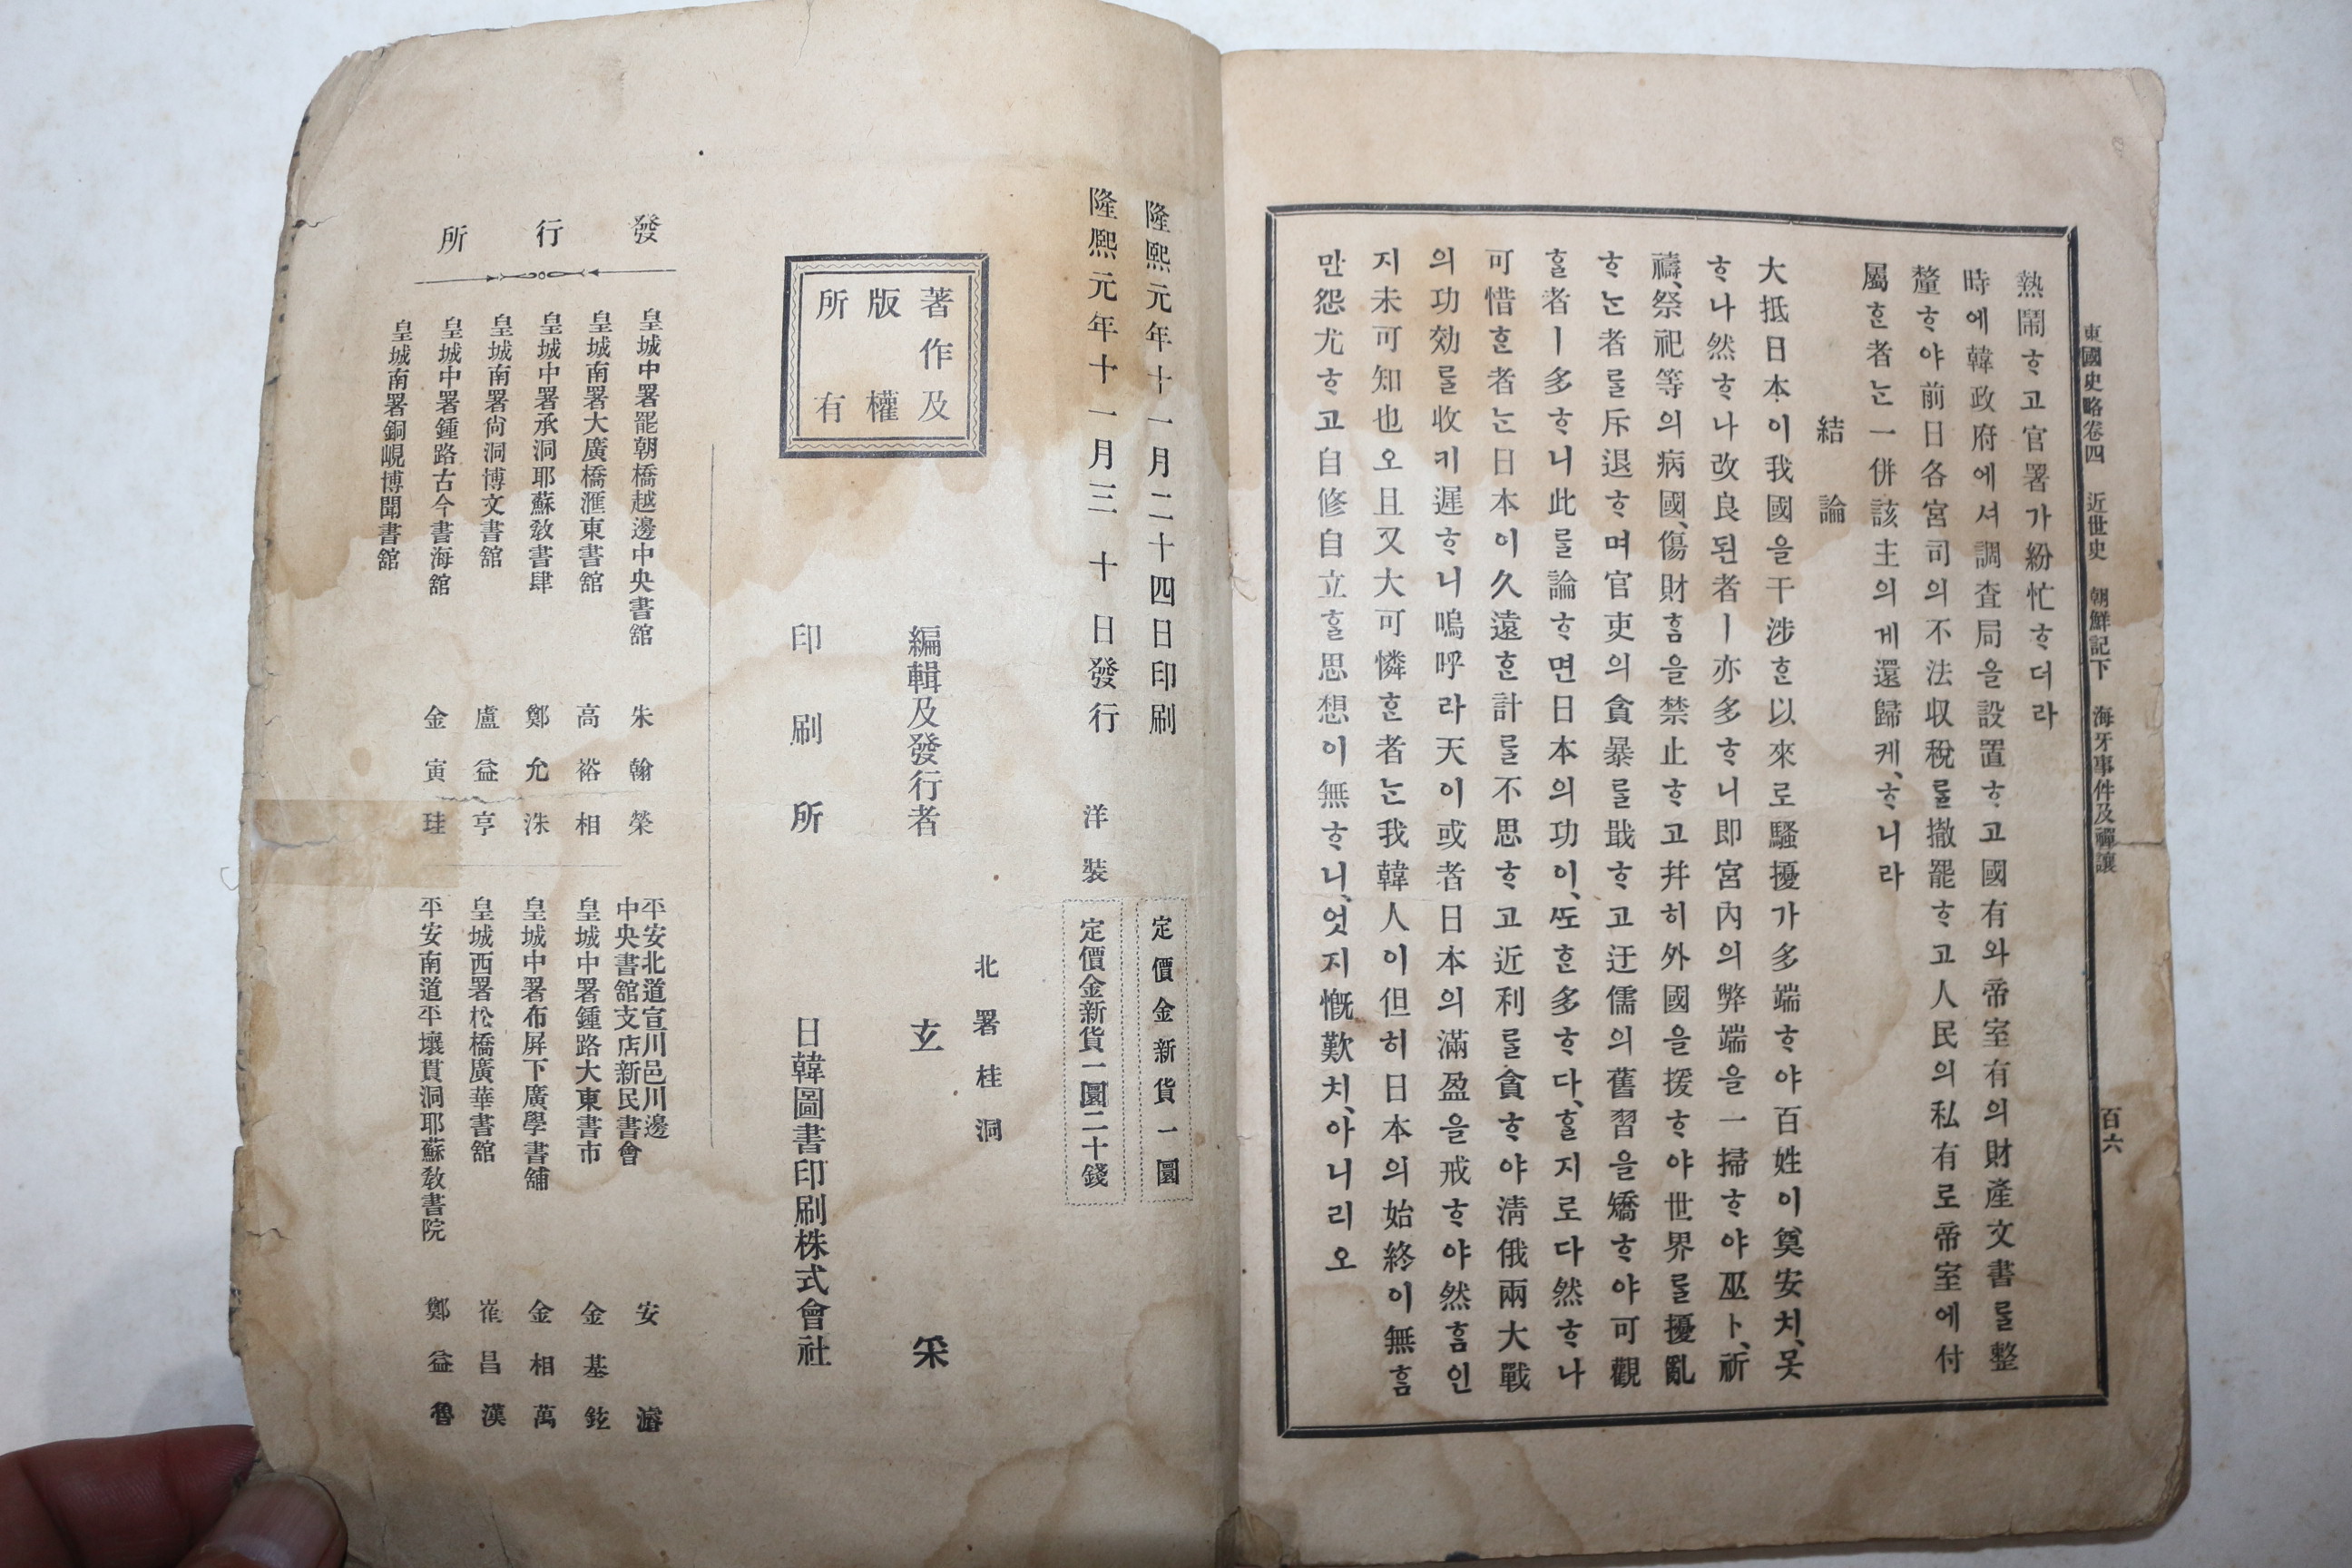 東國史略卷四 近世史 朝鮮記下 海牙事件及禪讓 百六
熱鬧ᄒᆞ고官署가紛忙ᄒᆞ더라
時에韓政府에셔調査局을設置ᄒᆞ고國有와帝室有의財產文書ᄅᆞᆯ整
釐ᄒᆞ야前日各宮司의不法収稅ᄅᆞᆯ撤罷ᄒᆞ고人民의私有로帝室에付
屬ᄒᆞᆫ者ᄂᆞᆫ一併該主의게還歸케、ᄒᆞ니라
結論
大抵日本이我國을干涉ᄒᆞᆫ以來로騷擾가多端ᄒᆞ야百姓이奠安치、못
ᄒᆞ나然ᄒᆞ나改良된者ㅣ亦多ᄒᆞ니即宮內의弊端을一掃ᄒᆞ야巫卜、祈
禱、祭祀等의病國、傷財ᄒᆞᆷ을禁止ᄒᆞ고幷히外國을援ᄒᆞ야世界ᄅᆞᆯ擾亂
ᄒᆞᄂᆞᆫ者ᄅᆞᆯ斥退ᄒᆞ며官吏의貪暴ᄅᆞᆯ戢ᄒᆞ고迂儒의舊習을矯ᄒᆞ야可觀
ᄒᆞᆯ者ㅣ多ᄒᆞ니此ᄅᆞᆯ論ᄒᆞ면日本의功이、ᄯᅩᄒᆞᆫ多ᄒᆞ다、ᄒᆞᆯ지로다然ᄒᆞ나
可惜ᄒᆞᆫ者ᄂᆞᆫ日本이久遠ᄒᆞᆫ計ᄅᆞᆯ不思ᄒᆞ고近利ᄅᆞᆯ貪ᄒᆞ야淸俄兩大戰
의功効ᄅᆞᆯ收키遲ᄒᆞ니嗚呼라天이或者日本의滿盈을戒ᄒᆞ야然ᄒᆞᆷ인
지未可知也오且又大可憐ᄒᆞᆫ者ᄂᆞᆫ我韓人이但히日本의始終이無ᄒᆞᆷ
만怨尤ᄒᆞ고自修自立ᄒᆞᆯ思想이無ᄒᆞ니、엇지慨歎치、아니리오
隆熙元年十一月二十四日印刷
隆熙元年十一月三十日發行
洋裝
定價金新貨一圜
定價金新貨一圜二十錢
著作及
版權
所有
北署桂洞
編輯及發行者 玄采
印刷所 日韓圖書印刷株式會社
發行所
皇城中署罷朝橋越邊中央書舘 朱翰榮
皇城南署大廣橋滙東書舘 高裕相
皇城中署承洞耶蘇敎書肆 鄭允洙
皇城南署尙洞博文書舘 盧益亨
皇城中署鍾路古今書海舘 金寅珪
皇城南署銅峴博聞書舘
平安北道宣川邑川邊
中央書舘支店新民書會 安濬
皇城中署鍾路大東書市 金基鉉
皇城中署布屛下廣學書舖 金相萬
皇城西署松橋廣華書舘 崔昌漢
平安南道平壤貫洞耶蘇敎書院 鄭益魯